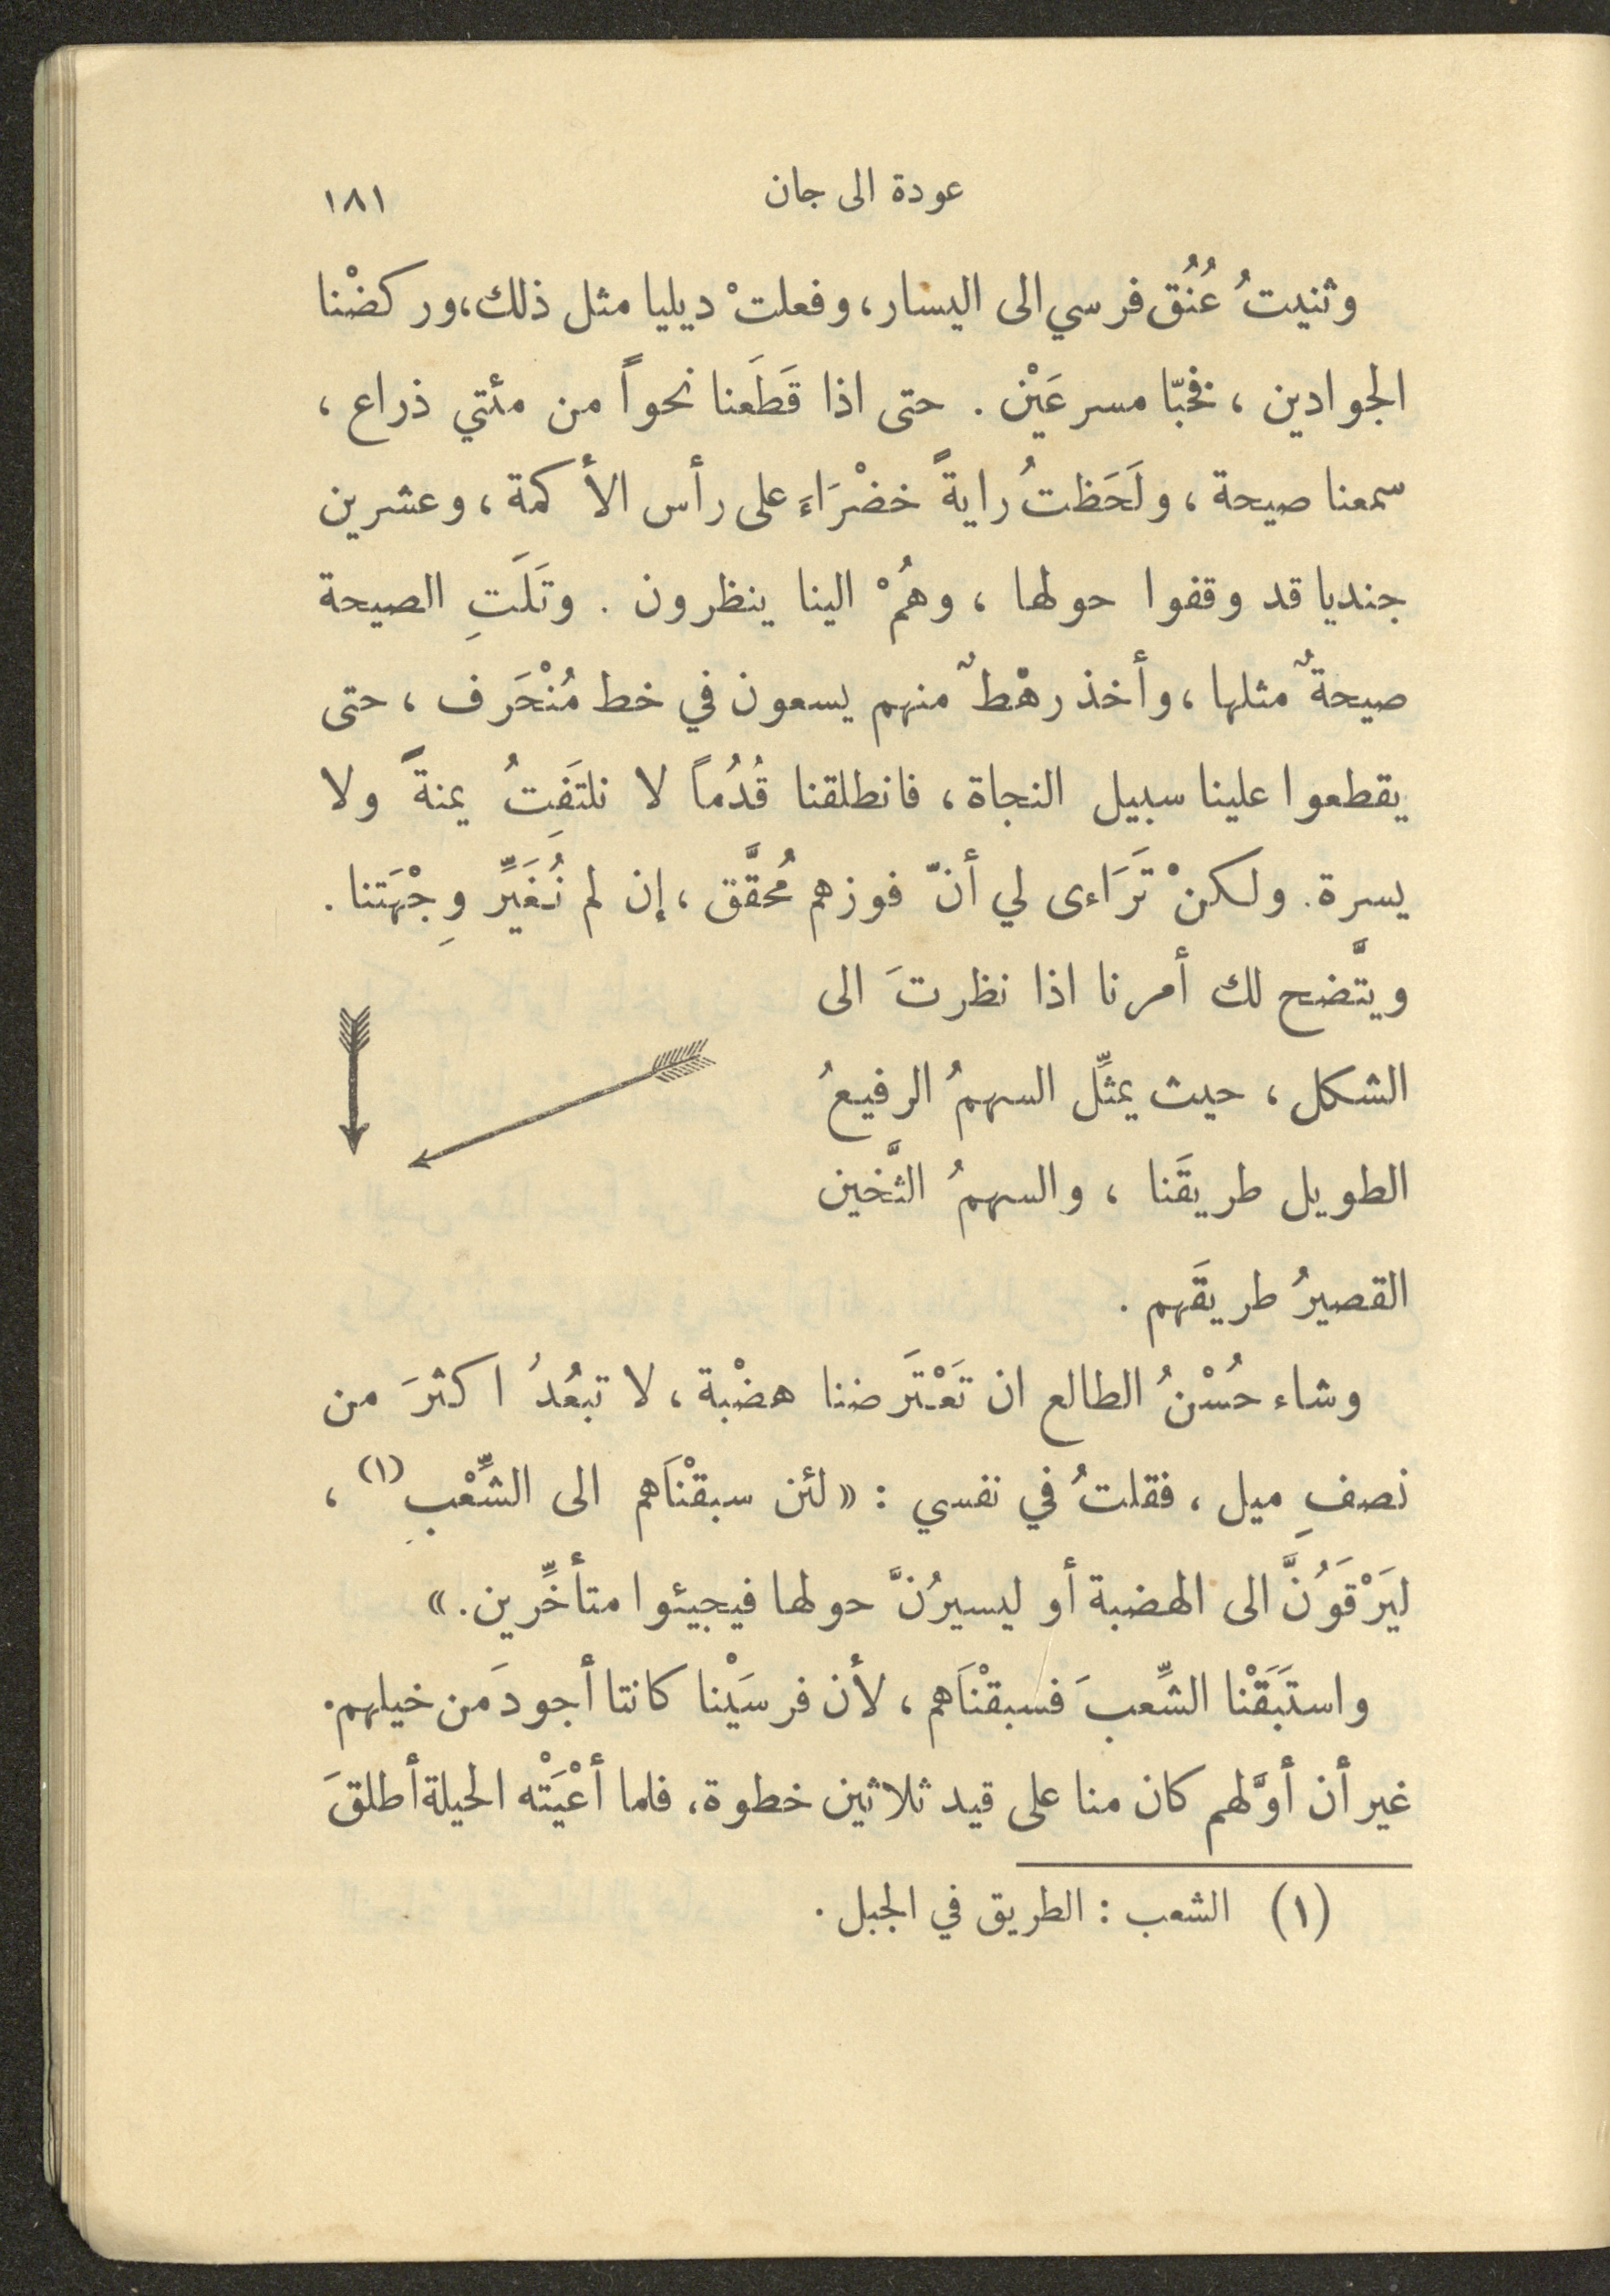 عودة الى جان
١٨١
وثنيتُ عُنُق فرسي الى اليسار، وفعلتْ ديليا مثل ذلك، وركضْنا
الجوادين ، فخبّا مسرعَيْن . حتى اذا قَطَعنا نحواً من مئتي ذراع ،
سمعنا صيحة ، ولَحَظتُ رايةً خضْرَاءَ على رأس الأكمة ، وعشرين
جنديا قد وقفوا حولها ، وهُمْ الينا ينظرون . وتَلَتِ الصيحة
صيحةٌ مثلها ، وأخذ رهْطٌ منهم يسعون في خط مُنْحَرف ، حتى
يقطعوا علينا سبيل النجاة ، فانطلقنا قُدُماً لا نلتَفِتُ يمنةً ولا
يسرة . ولكنْ تَرَاءى لي أنّ فوزهم مُحقَّق ، إن لم نُغَيِّر وِجْهَتنا .
ويتَّضح لك أمرنا اذا نظرتَ الى
الشكل ، حيث يمثِّل السهمُ الرفيعُ
الطويل طريقَنا ، والسهمُ الثَّخين
القصيرُ طريقَهم .
وشاء حُسْنُ الطالع ان تَعْتَرضنا هضْبة ، لا تبعُدُ اكثرَ من
نصفِ ميل ، فقلتُ في نفسي : « لئن سبقْنَاهم الى الشِّعْبِ (١) ،
ليَرْقَوُنَّ الى الهضبة أو ليسيرُنَّ حولها فيجيئوا متأخِّرين . »
واستَبَقْنا الشِّعبَ فسبقْنَاهم ، لأن فرسَيْنا كانتا أجودَ من خيلهم .
غير أن أوَّلهم كان منا على قيد ثلاثين خطوة ، فلما أعْيَتْه الحيلة أطلقَ
(١) الشعب : الطريق في الجبل .